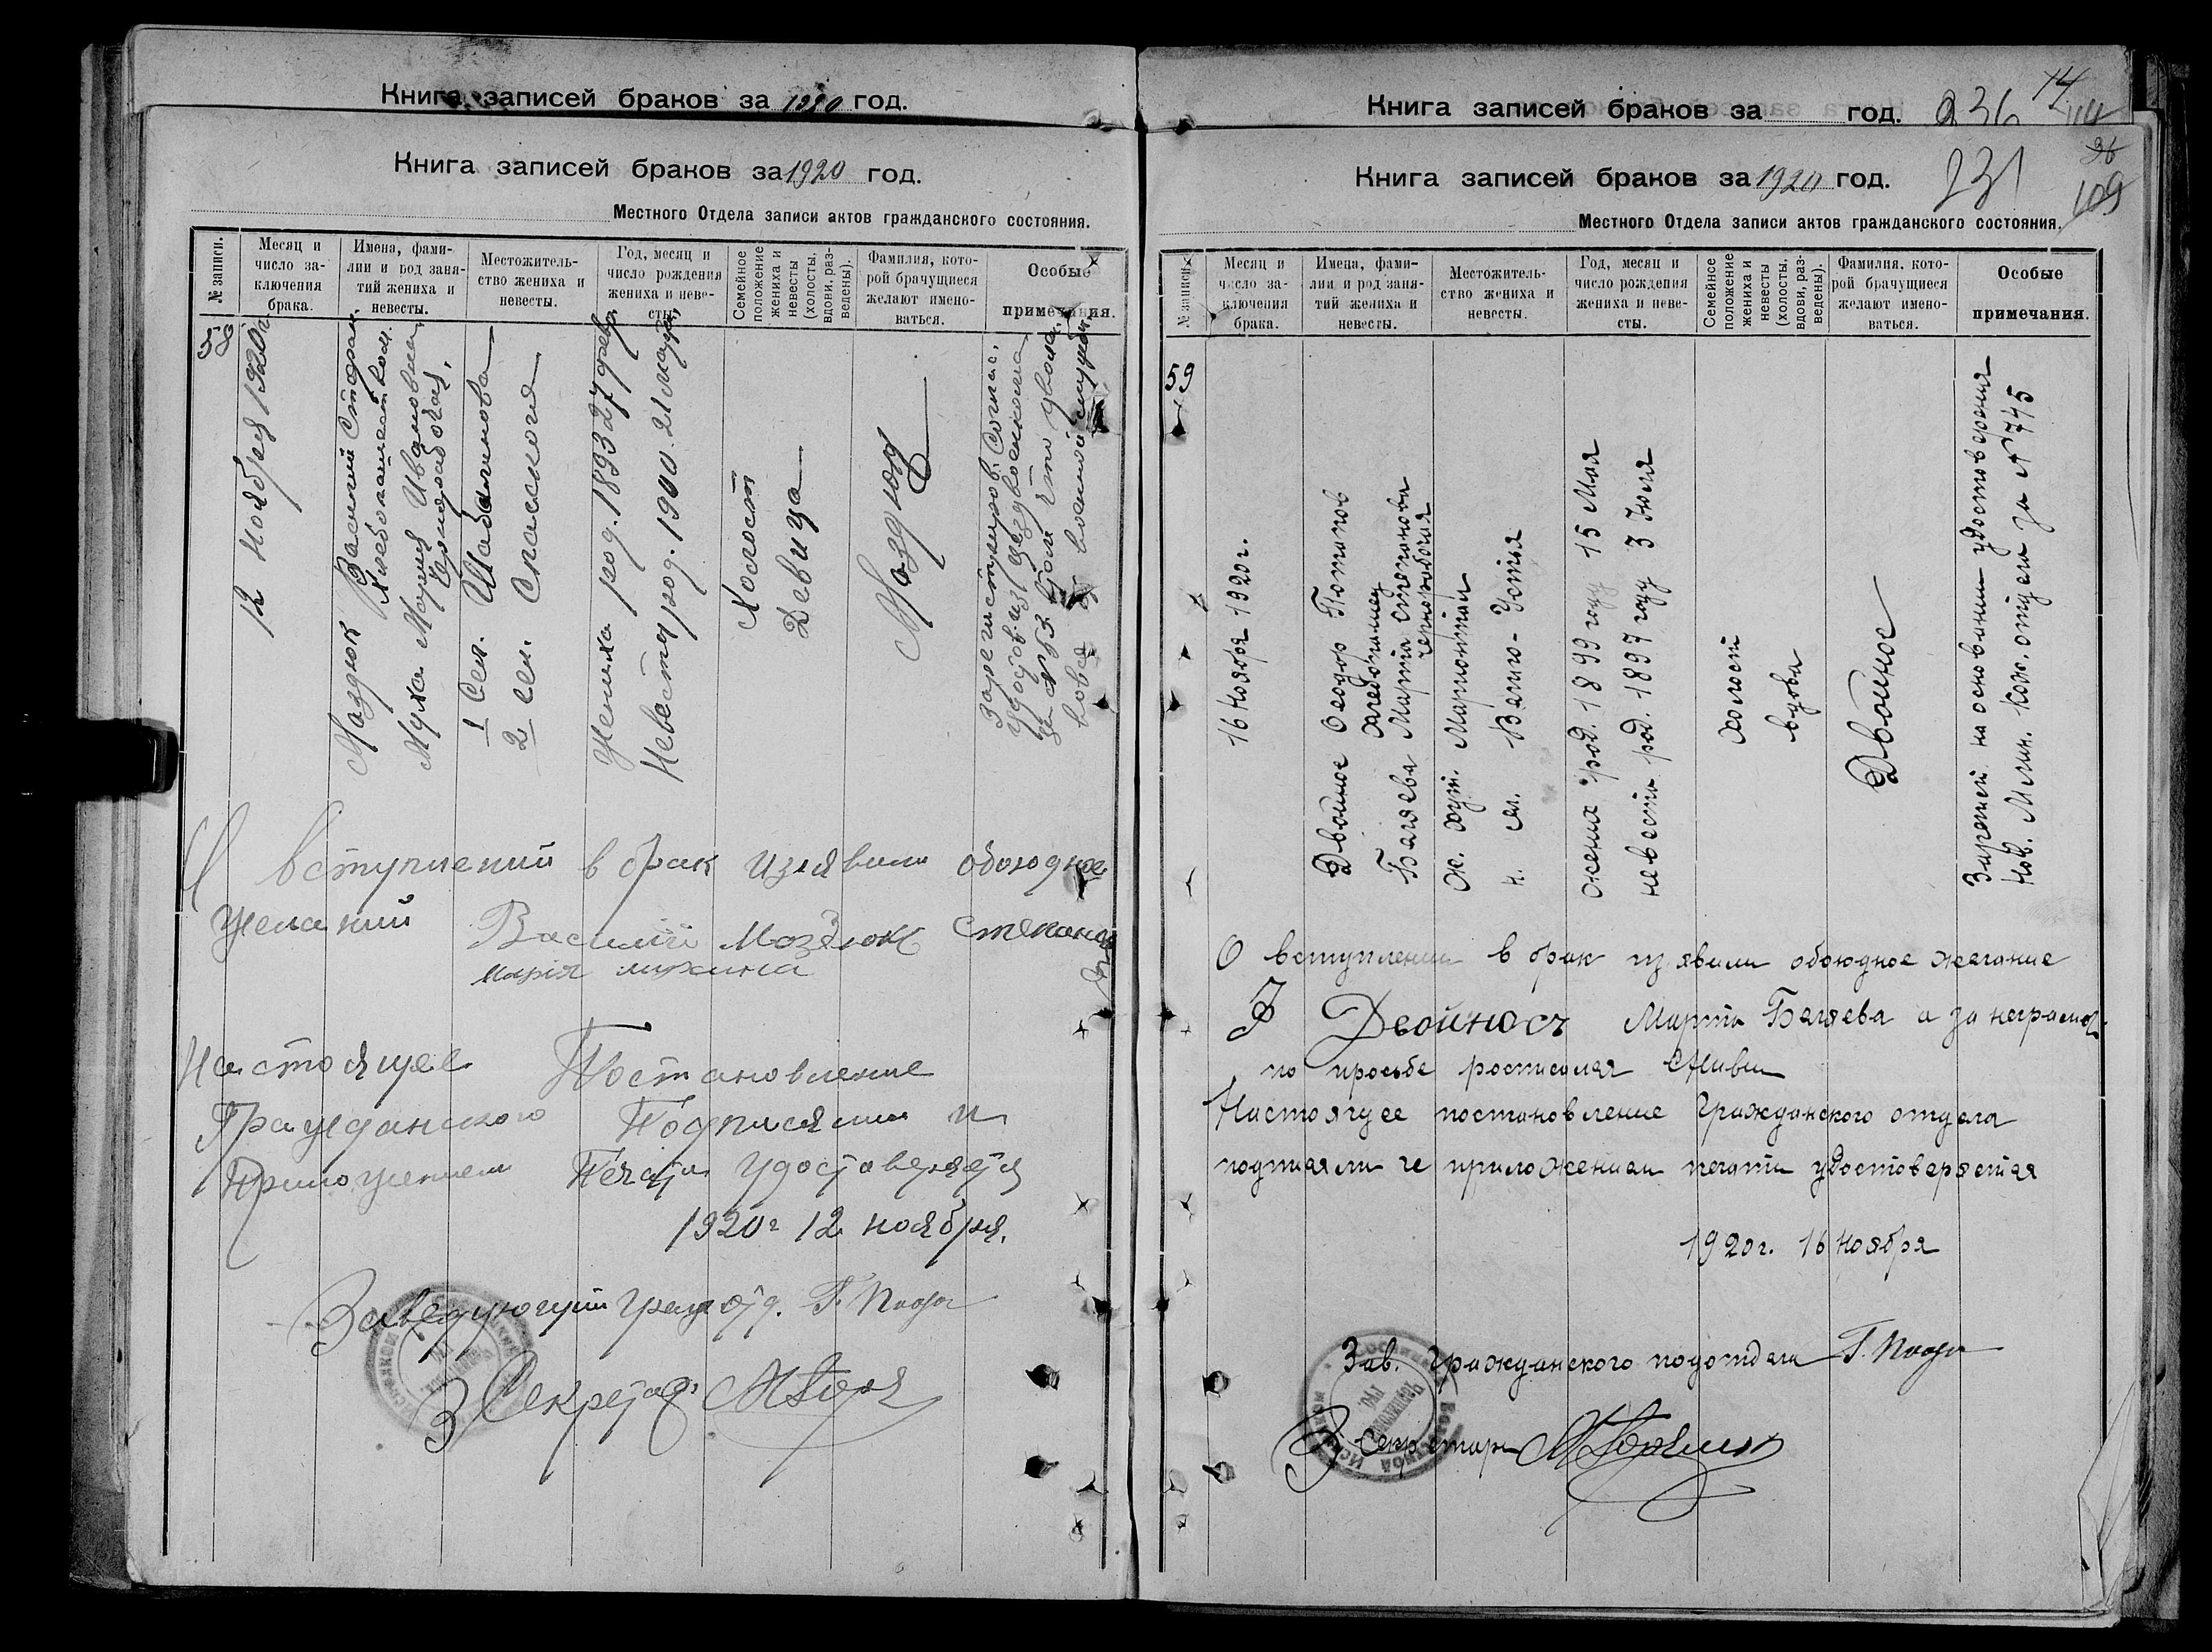 Книга записей браков за 1920 год.
Книга записей браков за 1920 год.
Местного Отдела записи актов гражданского состояния.
№ записи.
Месяц и число заключения брака.
Имена, фамилии и род занятий жениха и невесты.
Местожительство жениха и невесты.
Год, месяц и число рождения жениха и невесты.
Семейное положение жениха и невесты (холосты, вдовы, разведены).
Фамилия, которой брачущиеся желают именоваться.
Особые примечания.
58
12 Ноября 1920 г.
Маздюк Василий Стефан.
Хлебопашест
Муха Мария Ивановна
Чернорабочая,
1 Сел. Шабалинова
2 сел. Спасского
Жениха род. 1893 27 февр.
Невеста род. 1900. 21 Мар
Холост
Девица
Маздюк
О вступлений в брак изъявили обоюдное
желаний Василий Маздюк Степанов
Мария
Настоящее Постановление
Гражданского Подписями и
Приложением Печати Удостоверяется
1920 г 12 ноября.
Заведующий Гражд отд. Г.
Секретарь
Книга записей браков за год. 236 14
Книга записей браков за 1920 год. 231 36
109
Местного Отдела записи актов гражданского состояния.
№ записи.
Месяц и число заключения брака.
Имена, фамилии и род занятий жениха и невесты.
Местожительство жениха и невесты.
Год, месяц и число рождения жениха и невесты.
Семейное положение жениха и невесты (холосты, вдовы, разведены).
Фамилия, которой брачущиеся желают именоваться.
Особые примечания.
59
16 Ноября 1920 г.
Двойнос Феодор Потапов
хлебопашец
Багаева Марта Степановна
чернорабочая
ж. хут. Марионполь
н. сел. Велико-Устья
жених род. 1899 году 15 Мая
невеста род. 1897 году 3 Июля
холост
вдова
Двойнос
Зарегист. на основании удостоверения
Нов. Мин. Кож. отдела за № 745
О вступлении в брак изъявили обоюдное желание
Ф Двойносъ Марта Багаева а за неграмот.
по просьбе росписался
Настоящее постановление Гражданского отдела
подписями и приложением печати удостоверяется
1920 г. 16 Ноября
Зав. Гражданского подотдела Г.
Секретарь